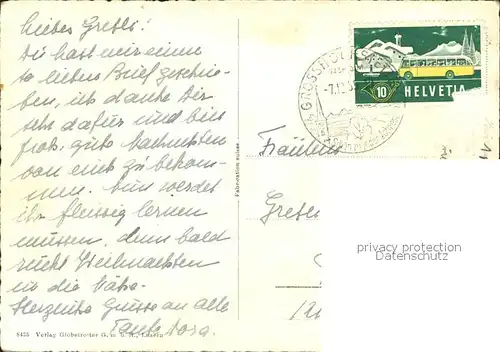 Liebes Gretli!
Du hast mir einen
so lieben Brief geschrie-
ben, ich danke Dir
sehr dafür und bin
froh, gute Nachrichten
von euch zu bekom-
men. Nun werdet
ihr fleissig lernen
müssen, denn bald
rückt Weihnachten
in die Nähe.
Herzliche Grüsse an alle
Tante Rosa.
8455 Verlag Globetrotter G.m.b.H., Luzern
Fabrication suisse
GROSSHÖ
-7.12
10
HELVETIA
Fräulein
Gretli
privacy protection
Datenschutz